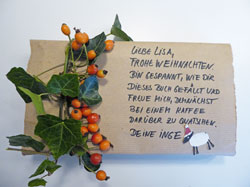 LIEBE LISA,
FROHE WEIHNACHTEN
BIN GESPANNT, WIE DIR
DIESES BUCH GEFÄLLT UND
FREUE MICH, DEMNÄCHST
BEI EINEM KAFFEE
DARÜBER ZU QUATSCHEN.
DEINE INGE